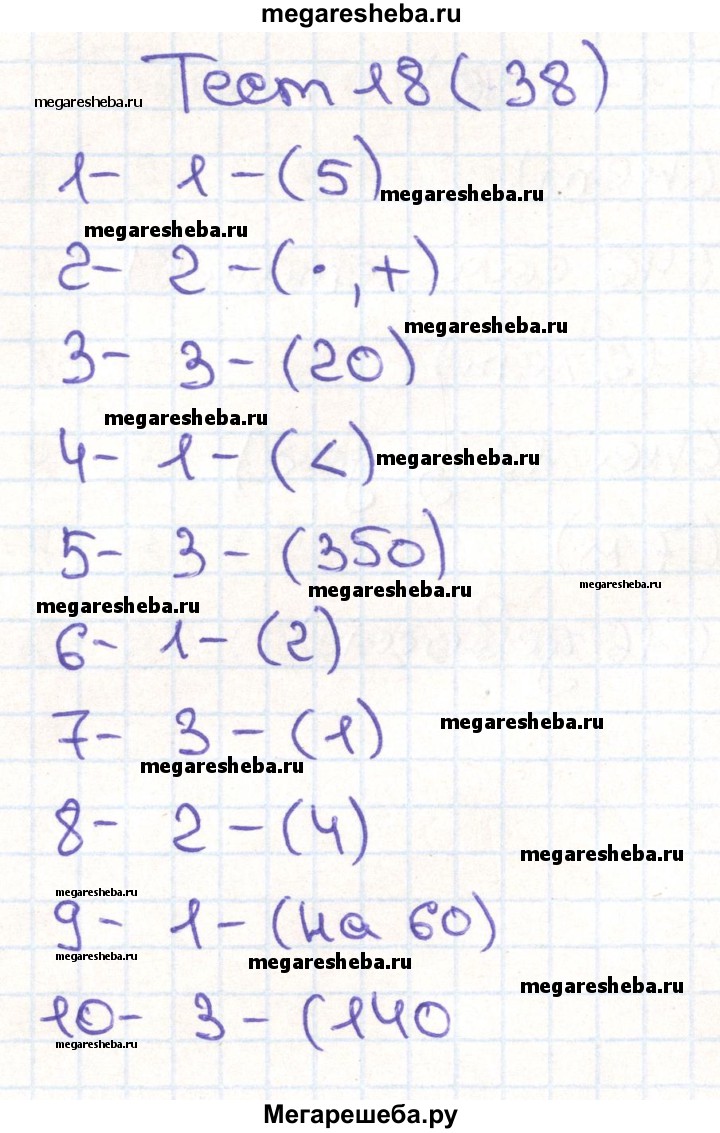 megaresheba.ru
Тест 18 (38)
megaresheba.ru
1- 1 - (5)
megaresheba.ru
megaresheba.ru
2- 2 - (·, +)
megaresheba.ru
3- 3 - (20)
megaresheba.ru
4- 1 - (<)
megaresheba.ru
5- 3 - (350)
megaresheba.ru
megaresheba.ru
megaresheba.ru
6- 1 - (2)
7- 3 - (1)
megaresheba.ru
megaresheba.ru
8- 2 - (4)
megaresheba.ru
megaresheba.ru
9- 1 - (на 60)
megaresheba.ru
megaresheba.ru
megaresheba.ru
10- 3 - (140
megaresheba.ru
Мегарешеба.ру